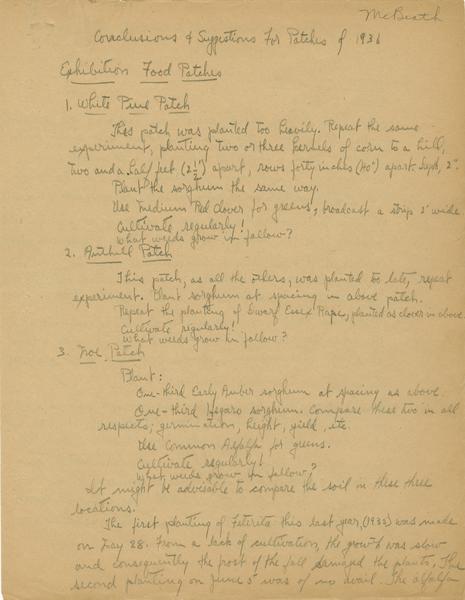 McBeath
Conclusions & Suggestions For Patches of 1936
Exhibition Food Patches
1. White Pine Patch
This patch was planted too heavily. Repeat the same
experiment, planting two or three kernels of corn to a hill,
two and a half feet (2½') apart, rows forty inches (40") apart. Depth, 2".
Plant the sorghum the same way.
Use Medium Red clover for greens, broadcast a strip 2' wide
Cultivate regularly!
What weeds grow in fallow?
2. Anthill Patch
This patch, as all the others, was planted too late, repeat
experiment. Plant sorghum at spacing in above patch.
Repeat the planting of Dwarf Essex Rape, planted as clover in above.
Cultivate regularly!
What weeds grow in fallow?
3. Noe Patch
Plant:
One-third Early Amber sorghum at spacing as above.
One-third Hegaro sorghum. Compare these two in all
respects; germination, height, yield, etc.
Use Common Alfalfa for greens.
Cultivate regularly!
What weeds grow in fallow?
It might be advisable to compare the soil in these three
locations.
The first planting of Feterita this last year, (1935) was made
on May 28. From a lack of cultivation, the growth was slow
and consequently the frost of the fall damaged the plants. The
second planting on June 5 was of no avail. The alfalfa